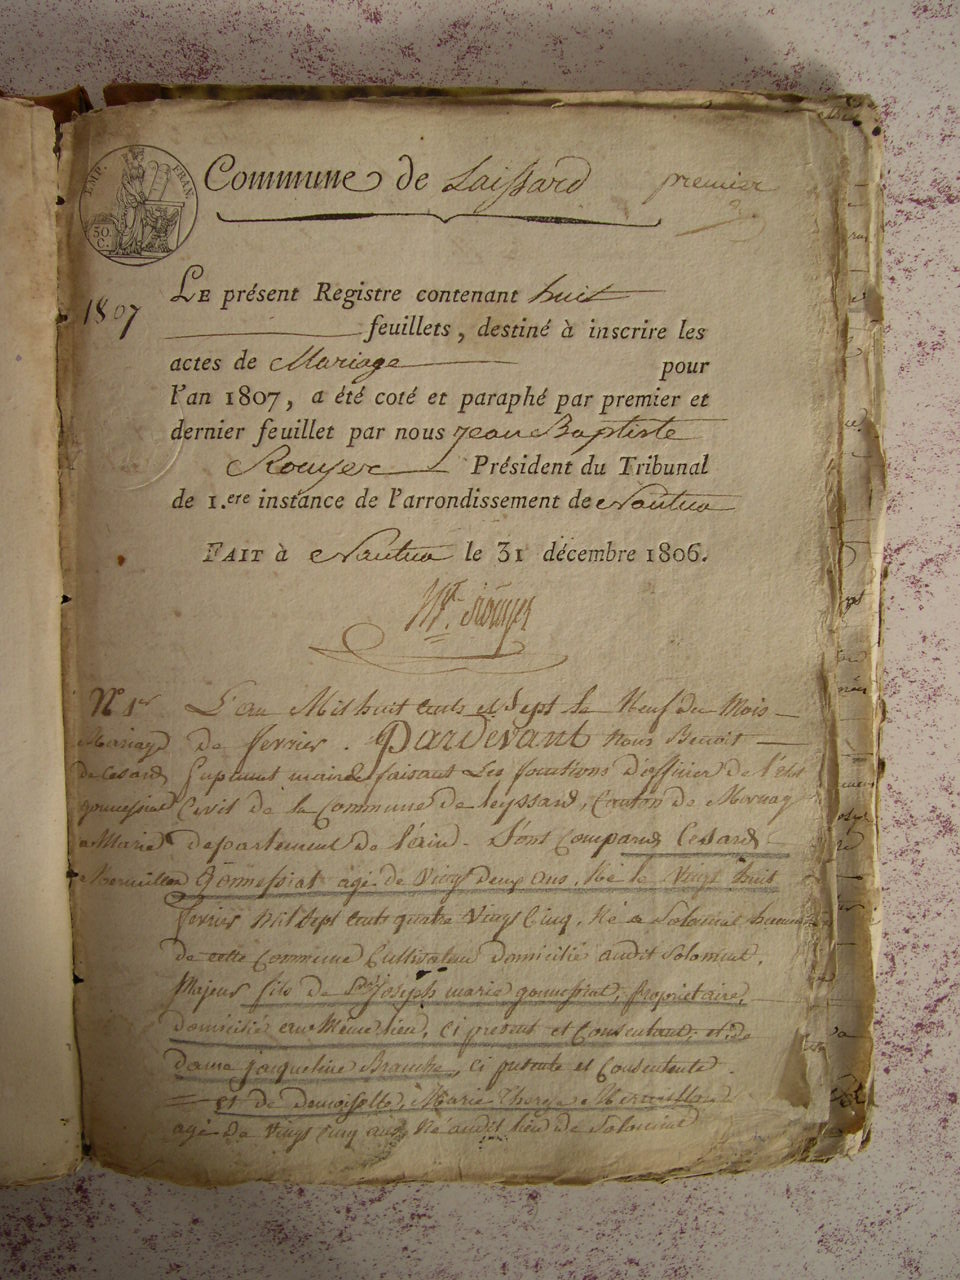 IMP. FRAN.
30. C.
Commune de Laissard premier
1807
LE présent Registre contenant huit
feuillets, destiné à inscrire les
actes de Mariage pour
l'an 1807, a été coté et paraphé par premier et
dernier feuillet par nous Jean Baptiste
Rouyer Président du Tribunal
de 1.ere instance de l'arrondissement de Nantua
FAIT à Nantua le 31 décembre 1806.
Rouyer
N° 1er L'an Mil huit cents et Sept le Neuf du Mois
Mariage de fevrier. Pardevant nous Benoit
de Cesard maire faisant Les fonctions d'officier de l'état
gonnessiat Civil de la Commune de leyssard, Canton de
a Marie departement de l'ain. Sont Comparus Cesard
Mermillon Gonnessiat agé de Vingt Deux ans, Né le Vingt huit
fevrier Mil Sept Cents quatre Vingt Cinq, Né a Solomiat hameau
de cette Commune Cultivateur domicilié audit Solomiat,
Majeur fils de Sr Joseph marie gonnessiat, propriétaire,
domicilié au Même lieu, Ci present et Consentant, et de
dame jacqueline Branche, Ci presente et Consentente.
et de Demoiselle, Marie Therese
agé de Vingt Cinq ans, Né audit lieu de Solomiat